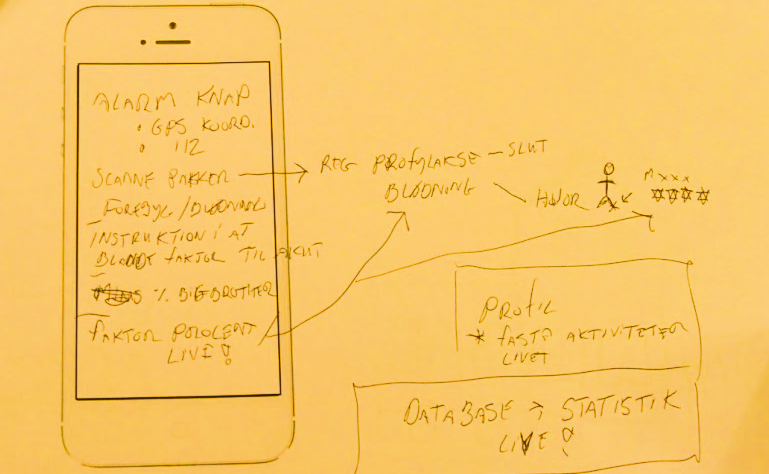 ALARM KNAP
• GPS KOORD.
• 112
SCANNE PAKKER → REG PROFYLAKSE – SLUT
BLØDNING
HVOR
xxx
FOREBYG /
INSTRUKTION I AT
BLANDE FAKTOR TIL AKUT
% BIGBROTHER
FAKTOR POROCENT
LIVE!
PROFIL
* FASTE AKTIVITETER
LIVET
DATABASE → STATISTIK
LIVE!